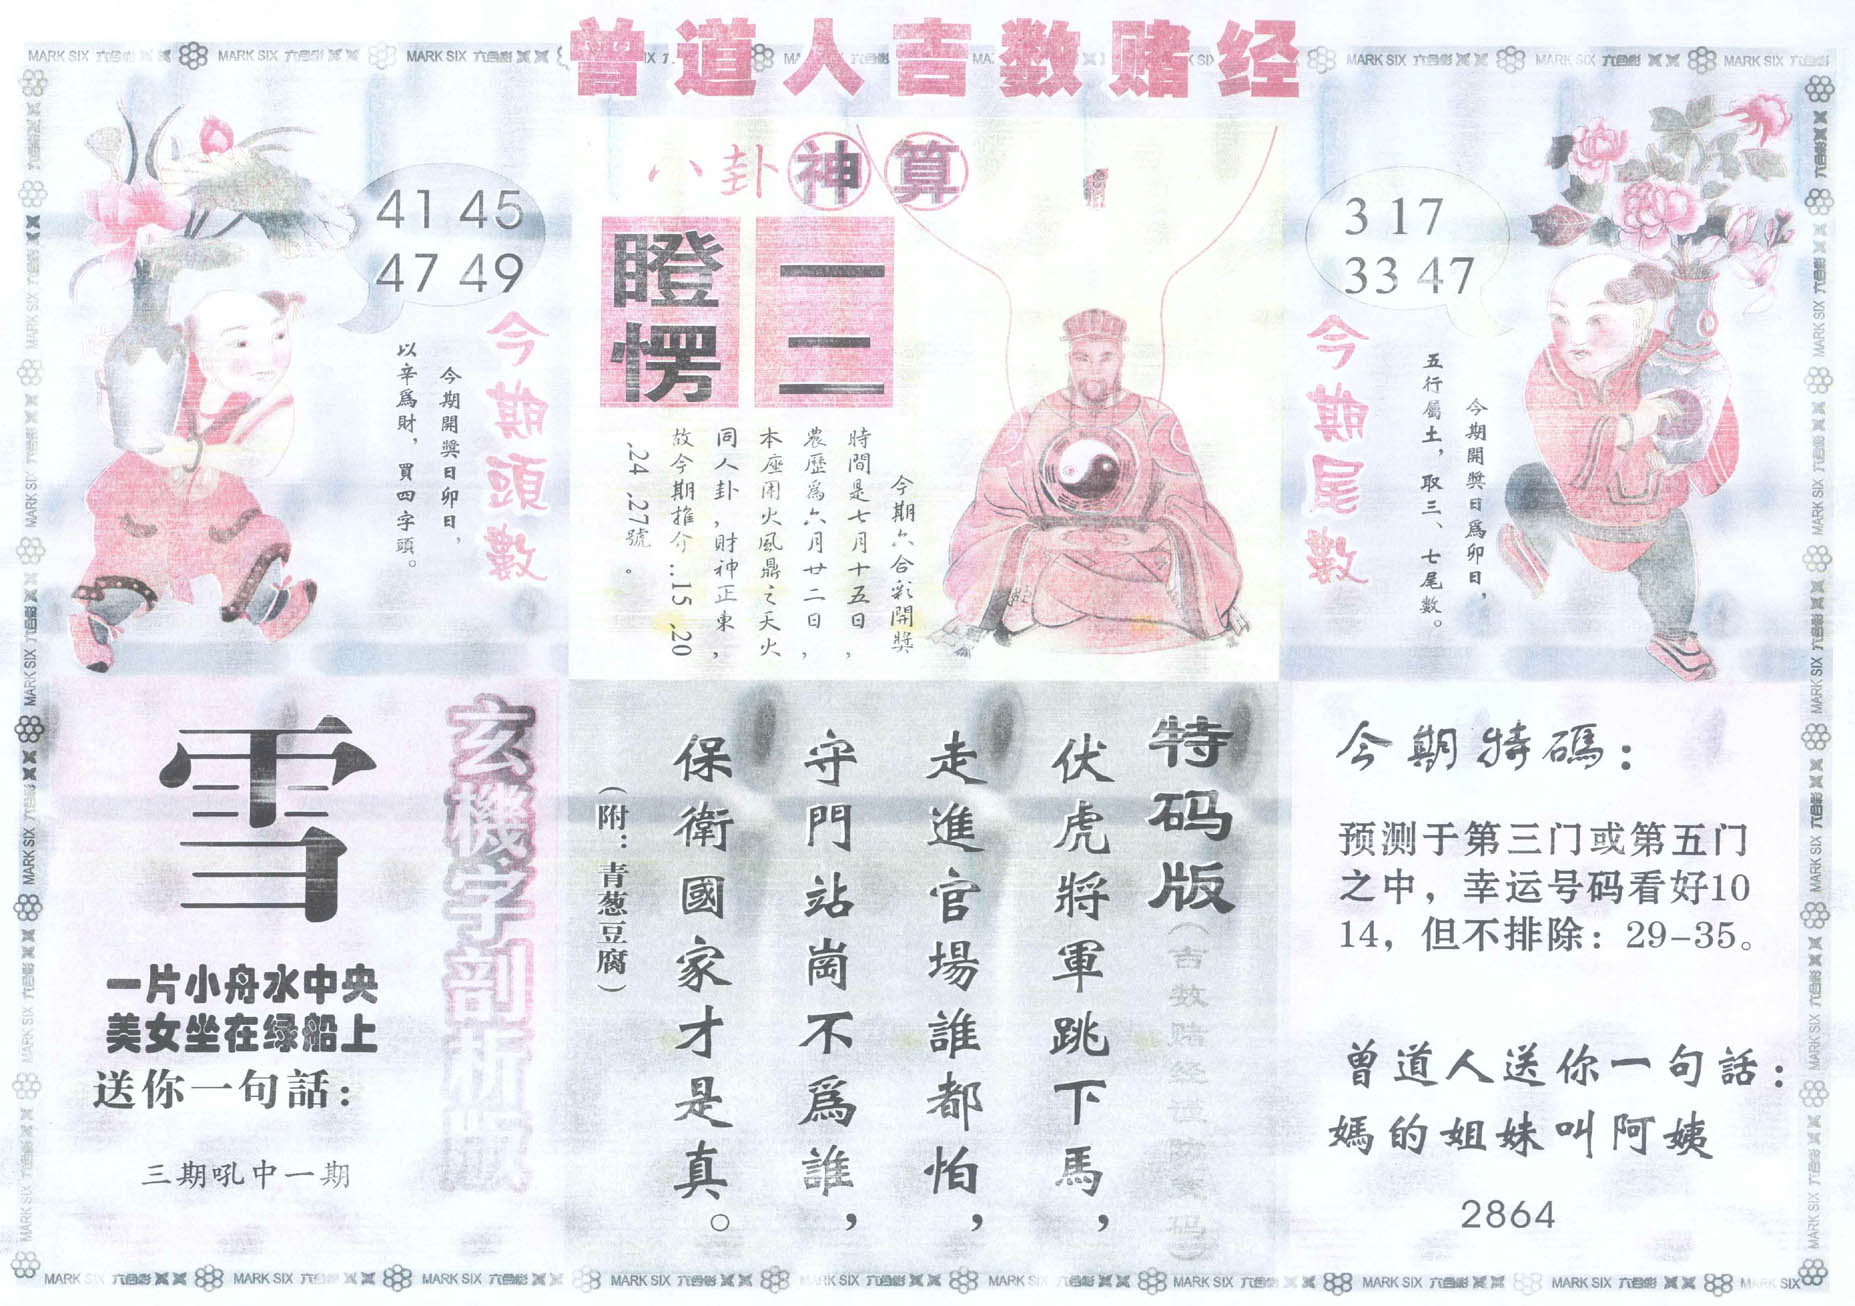 曾道人吉数赌经
八卦神算
一二
瞪愣
今期六合彩開獎
時間是七月十五日，
農歷爲六月廿二日，
本座用火風鼎之天火
同人卦，財神正東，
故今期推介..15 .20
.24 .27號。
41 45
47 49
今期頭數
今期開獎日卯日，
以辛爲財，買四字頭。
3 17
33 47
今期尾數
今期開獎日爲卯日，
五行屬土，取三、七尾數。
玄機字剖析版
雪
一片小舟水中央
美女坐在绿船上
送你一句話：
三期吼中一期
特码版
（吉数赌经谨防变码）
伏虎將軍跳下馬，
走進官場誰都怕，
守門站崗不爲誰，
保衛國家才是真。
（附：青葱豆腐）
今期特碼：
预测于第三门或第五门
之中，幸运号码看好10
14，但不排除：29-35。
曾道人送你一句話：
媽的姐妹叫阿姨
2864
MARK SIX 六合彩